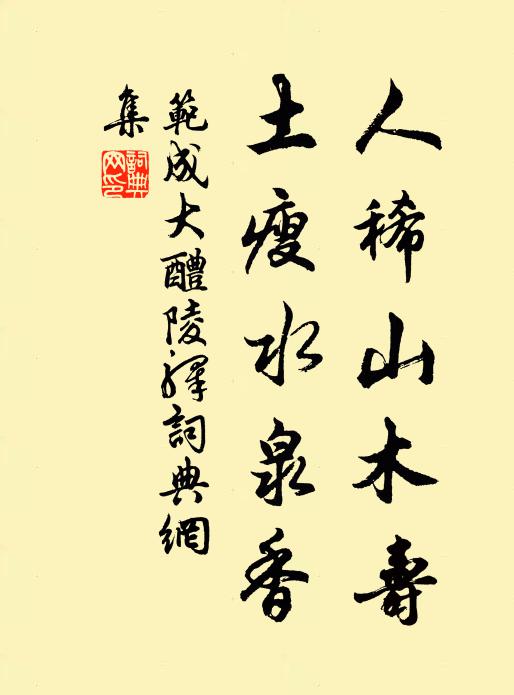 人稀山木壽
土瘦水泉香
範成大醴陵驛詞典網
集
詞典
网印